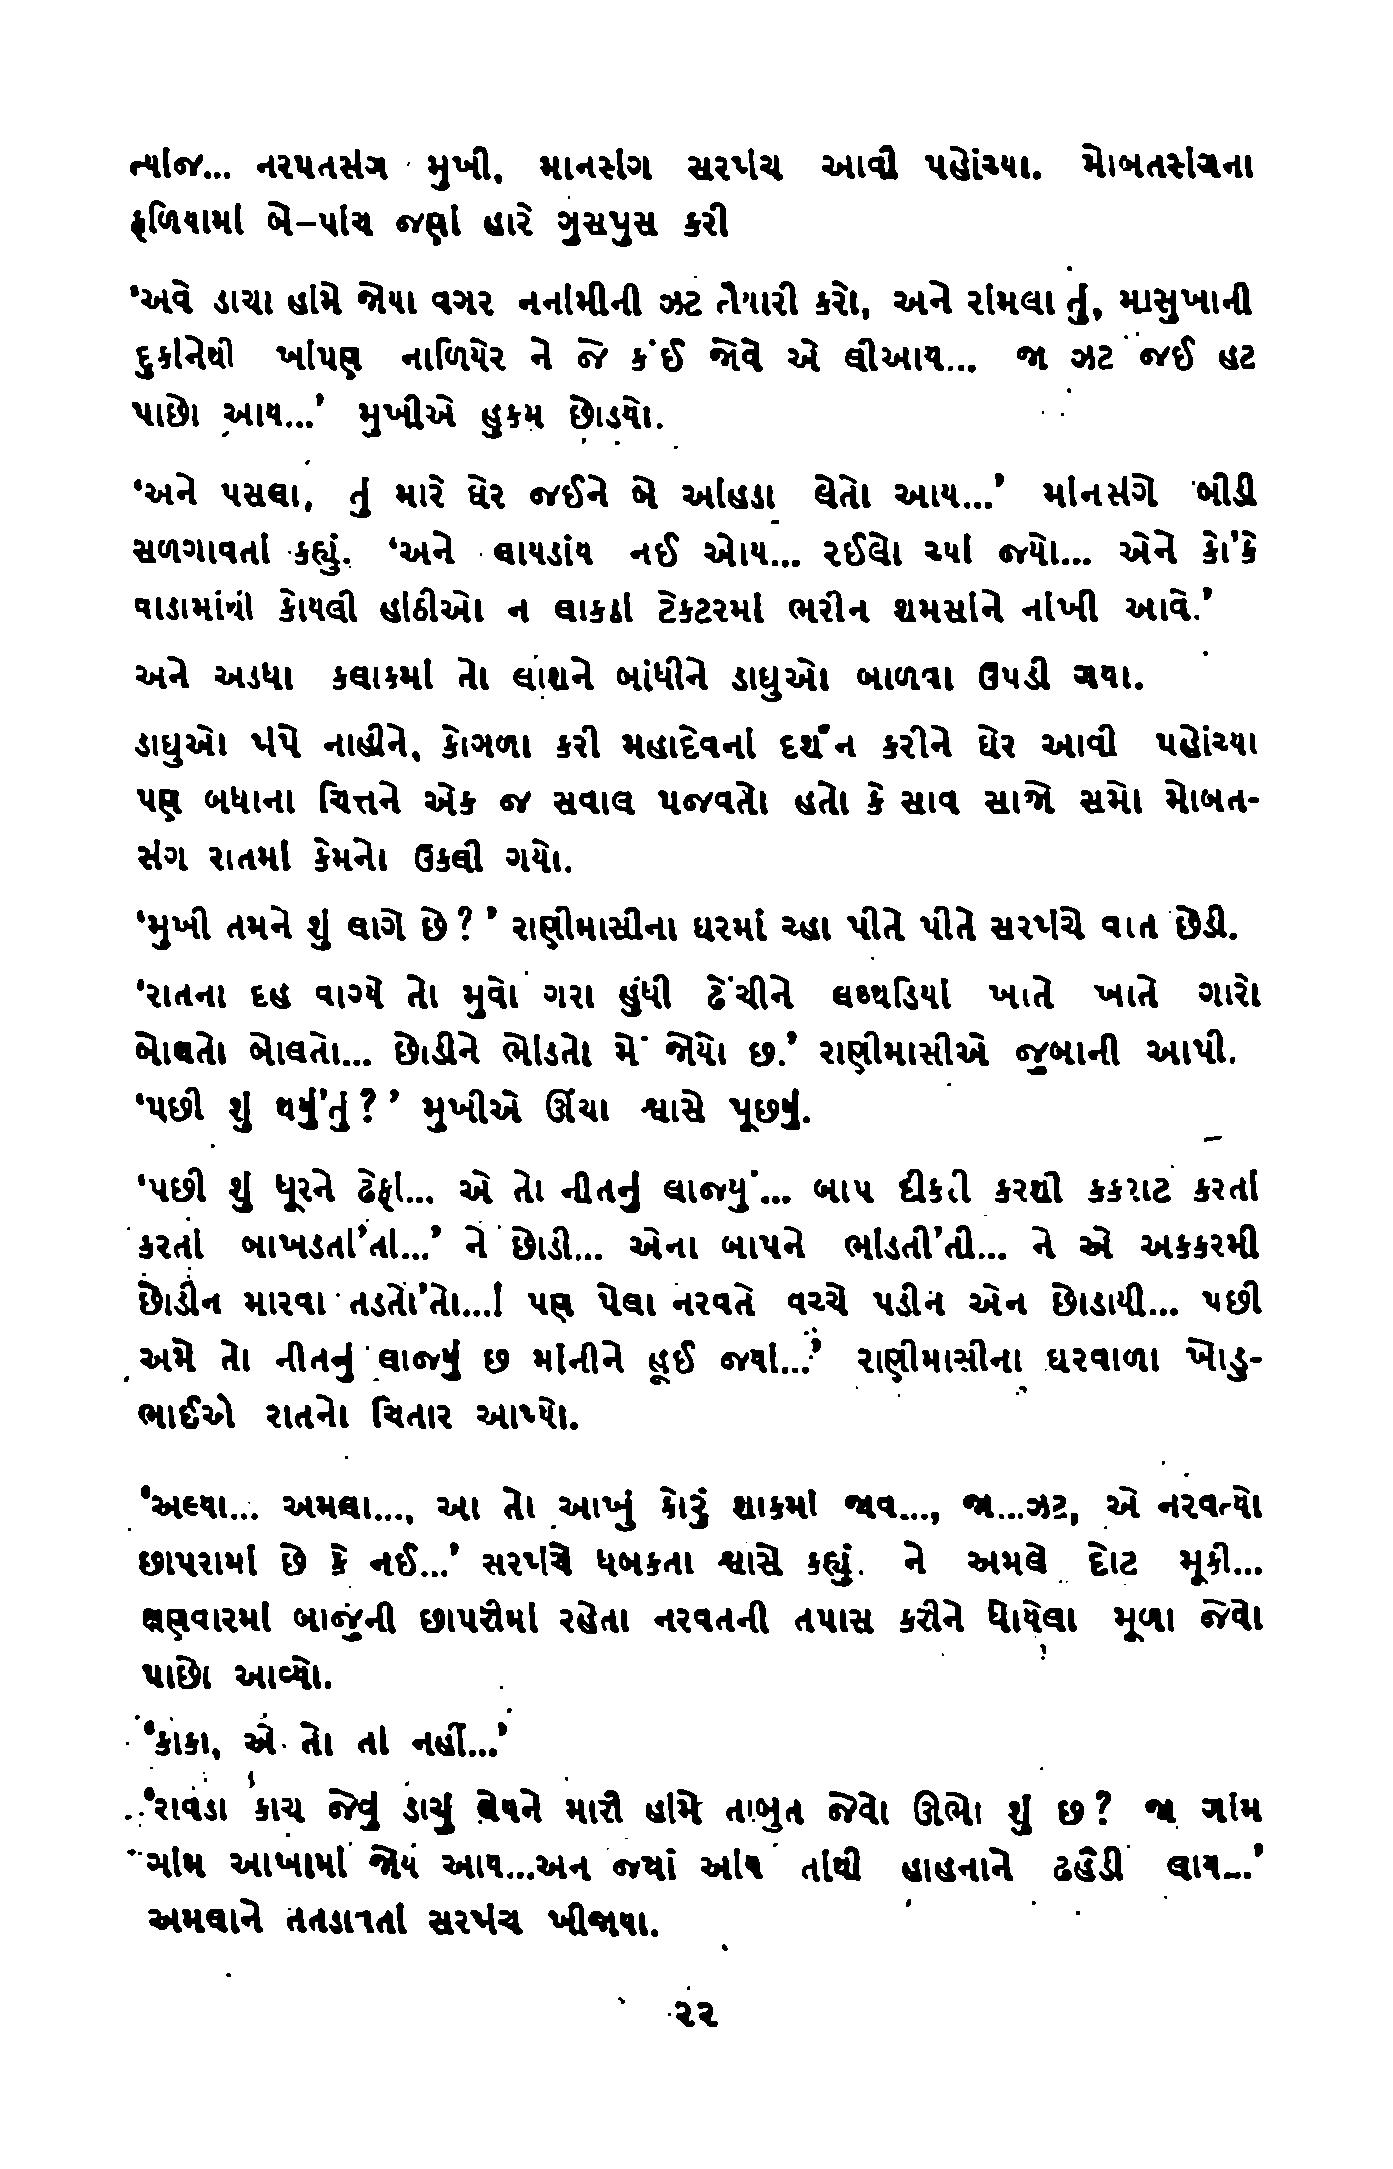 ત્યાંજ... નરપતસંગ મુખી, માનસંગ સરપંચ આવી પહોંચ્યા. મોબતસંગના
ફળિયામાં બે–પાંચ જણાં હારે ગુસપુસ કરી
‘અવે ડાચા હાંમે જોયા વગર નનાંમીની ઝટ તૈયારી કરો, અને રાંમલા તું, માસુખાની
દુકાંનેથી ખાંપણ નાળિયેર ને જે કંઈ જોવે એ લીઆય... જા ઝટ જઈ હટ
પાછો આય...’ મુખીએ હુકમ છોડયો.
‘અને પસલા, તું મારે ઘેર જઈને બે આંહડા લેતો આય...’ માંનસંગે બીડી
સળગાવતાં કહ્યું. ‘અને લાયડાંય નઈ એાય... રઈલો ચ્યાં જ્યો... એને કો’કે
વાડામાંથી કોયલી હાંઠીઓ ન લાકડાં ટેકટરમાં ભરીન શમસાંને નાંખી આવે.’
અને અડધા કલાકમાં તો લાશને બાંધીને ડાઘુઓ બાળવા ઉપડી ગયા.
ડાઘુઓ પંપે નાહીને, કોગળા કરી મહાદેવનાં દર્શન કરીને ઘેર આવી પહોંચ્યા
પણ બધાના ચિત્તને એક જ સવાલ પજવતો હતો કે સાવ સાજો સમો મોબત-
સંગ રાતમાં કેમનો ઉકલી ગયો.
‘મુખી તમને શું લાગે છે ?’ રાણીમાસીના ઘરમાં ચ્હા પીતે પીતે સરપંચે વાત છેડી.
‘રાતના દહ વાગ્યે તો મુવો ગરા હુંધી ઢેંચીને લથ્થડિયાં ખાતે ખાતે ગારો
બોલતો બોલતો... છોડીને ભાંડતો મેં જોયો છ.’ રાણીમાસીએ જુબાની આપી.
‘પછી શું થયું’તું ?’ મુખીએ ઊંચા શ્વાસે પૂછયું.
‘પછી શું ધૂરને ઢેફાં... એ તો નીતનું લાજયું... બાપ દીકરી કરશી કકરાટ કરતાં
કરતાં બાખડતાં’તાં...’ ને છોડી... એના બાપને ભાંડતી’તી... ને એ અકકરમી
છોડીન મારવા તડતો’તો...! પણ પેલા નરવતે વચ્ચે પડીન એન છોડાયી... પછી
અમે તો નીતનું લાજયું છ માંનીને હૂઈ જ્યાં...’ રાણીમાસીના ઘરવાળા ખોડુ-
ભાઈએ રાતનો ચિતાર આપ્યો.
‘અલ્યા... અમલા..., આ તો આખું કોરું શાકમાં જાવ..., જા...ઝટ, એ નરવત્યો
છાપરામાં છે કે નઈ...’ સરપંચે ધબકતા શ્વાસે કહ્યું. ને અમલે દોટ મૂકી...
ક્ષણવારમાં બાજુંની છાપરીમાં રહેતા નરવતની તપાસ કરીને ધોયેલા મૂળા જેવો
પાછો આવ્યો.
‘કાકા, એ તો તાં નહીં...’
‘રાવડા કાચ જેવું ડાચું લેયને મારી હાંમે તાબુત જેવો ઊભો શું છ? જા ગાંમ
ગાંમ આખામાં જોય આય...અન જ્યાં આંય તાંથી હાહનાને ઢહૈડી લાય...’
અમલાને તતડાવતાં સરપંચ ખીજાયા.
૨૨